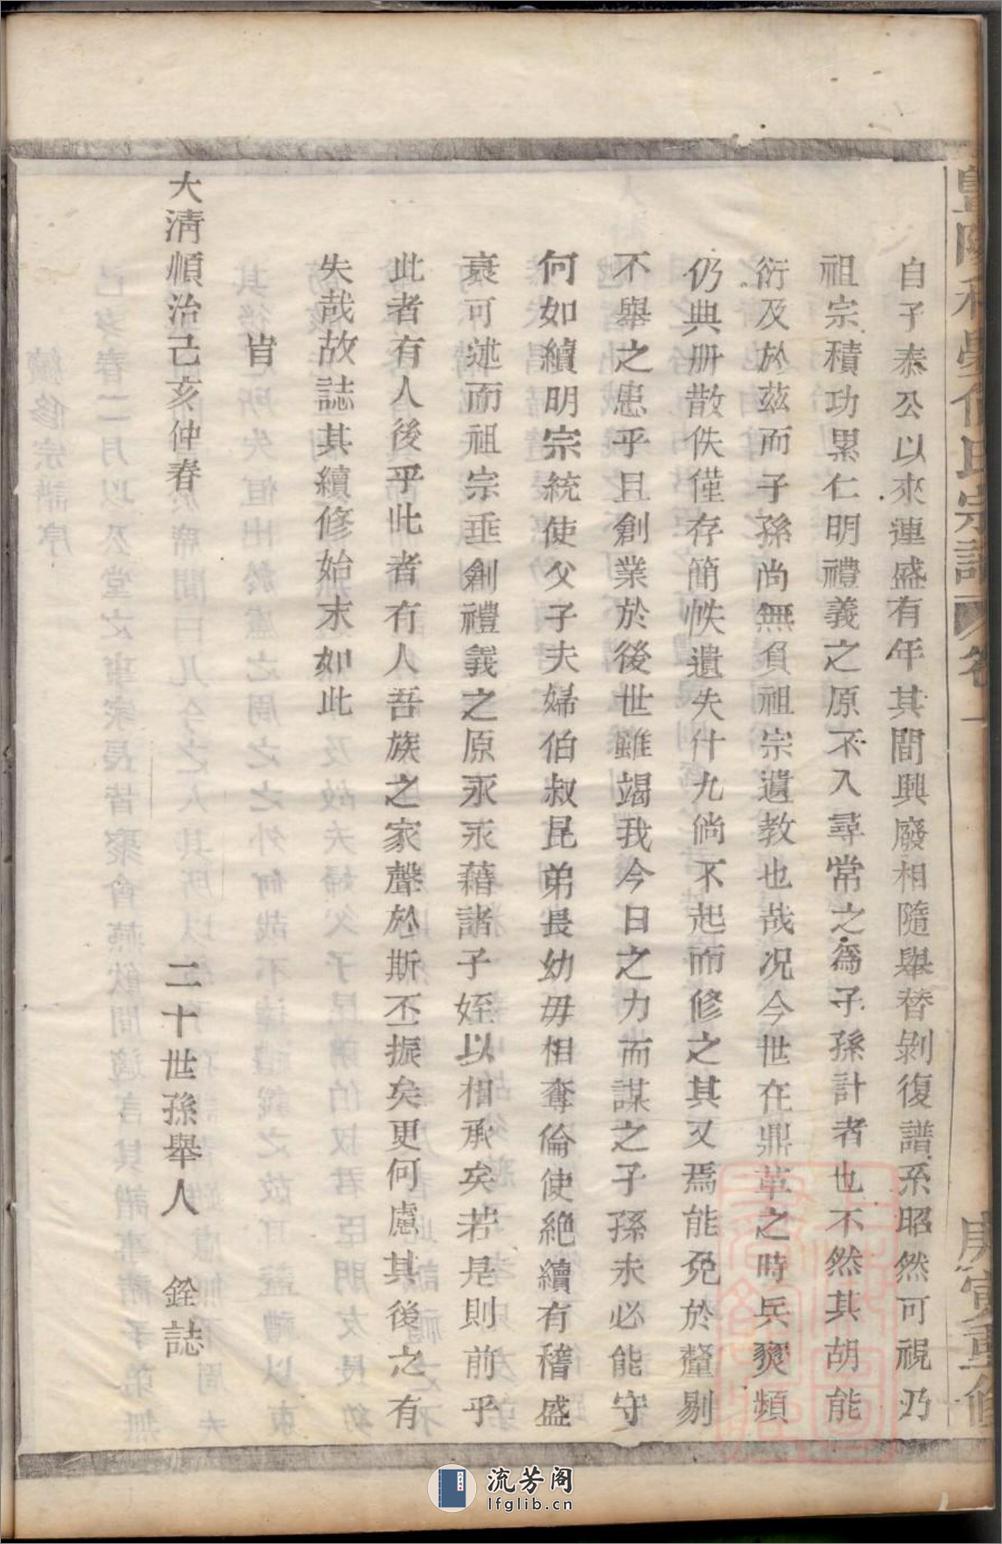 自子泰公以來連盛有年其間興廢相隨舉替剝復譜系昭然可視乃
祖宗積功累仁明禮義之原不入尋常之為子孫計者也不然其胡能
衍及於茲而子孫尚無負祖宗遺教也哉况今世在鼎革之時兵燹頻
仍典册散佚僅存簡帙遺失什九倘不起而修之其又焉能免於釐剔
不舉之患乎且創業於後世雖竭我今日之力而謀之子孫未必能守
何如續明宗統使父子夫婦伯叔昆弟長幼毋相奪倫使絶續有稽盛
衰可述而祖宗垂創禮義之原永永藉諸子姪以相承矣若是則前乎
此者有人後乎此者有人吾族之家聲於斯丕振矣更何慮其後之有
失哉故誌其續修始末如此
旹
大清順治己亥仲春 二十世孫舉人 銓誌
宗譜 卷一 庚寅重修
流芳阁
lfglib.cn